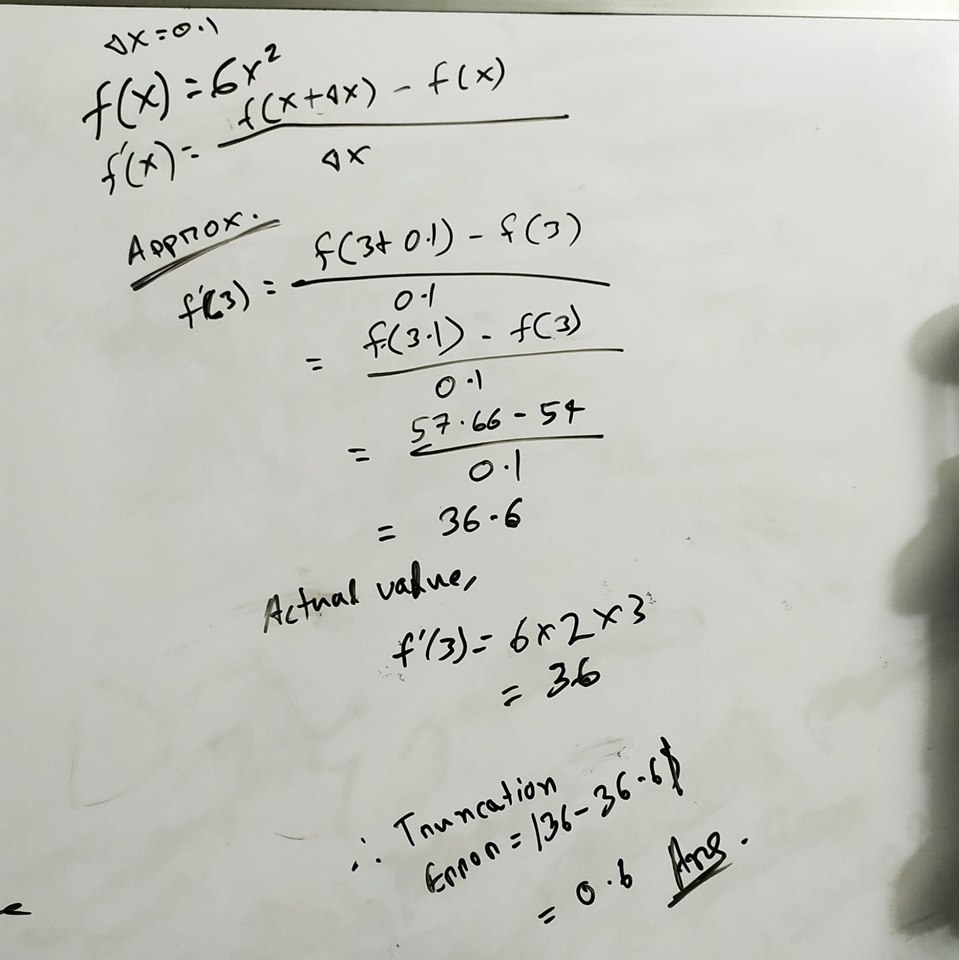 Δx=0.1
f(x)=6x²
f'(x)= f(x+Δx) - f(x)
Δx
Approx.
f'(3) = f(3+0.1) - f(3)
0.1
= f(3.1) - f(3)
0.1
= 57.66 - 54
0.1
= 36.6
Actual value,
f'(3)= 6×2×3
= 36
∴ Truncation
Error = |36-36.6|
= 0.6 Ans.